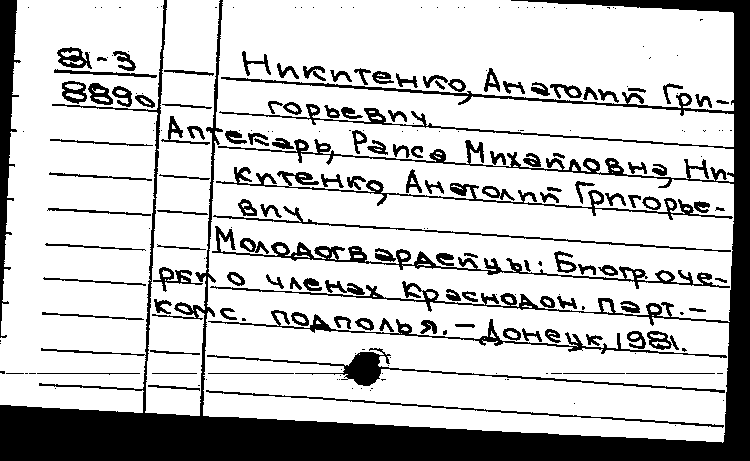 81-3
8890
Никитенко, Анатолий Гри-
горьевич.
Аптекарь, Раиса Михайловна, Ни-
китенко, Анатолий Григорье-
вич.
Молодогвардейцы: Биогр. оче-
рки о членах Краснодон. парт.-
комс. подполья. – Донецк, 1981.